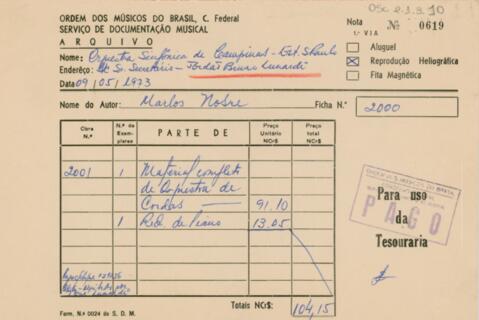 OSC 2.1.3.10
ORDEM DOS MÚSICOS DO BRASIL, C. Federal
SERVIÇO DE DOCUMENTAÇÃO MUSICAL
ARQUIVO
Nota Nº 0619
1.ª VIA
Nome: Orquestra Sinfônica de Campinas - Est. S. Paulo
Endereço: Sr. Secretário - Jordão Bruno Lunardi
Data 09/05/1973
Aluguel
Reprodução Heliográfica
Fita Magnética
Nome do Autor: Marlos Nobre Ficha N.º 2000
Obra N.º N.º de Exemplares PARTE DE Preço Unitário NCr$ Preço total NCr$
2001 1 Material completo
de Orquestra de
Cordas — 91,10
1 Red. de Piano 13,05
ORDEM DOS MÚSICOS DO BRASIL
PAGO
Para uso
da
Tesouraria
Totais NCr$: 104,15
Form. N.º 0024 do S. D. M.